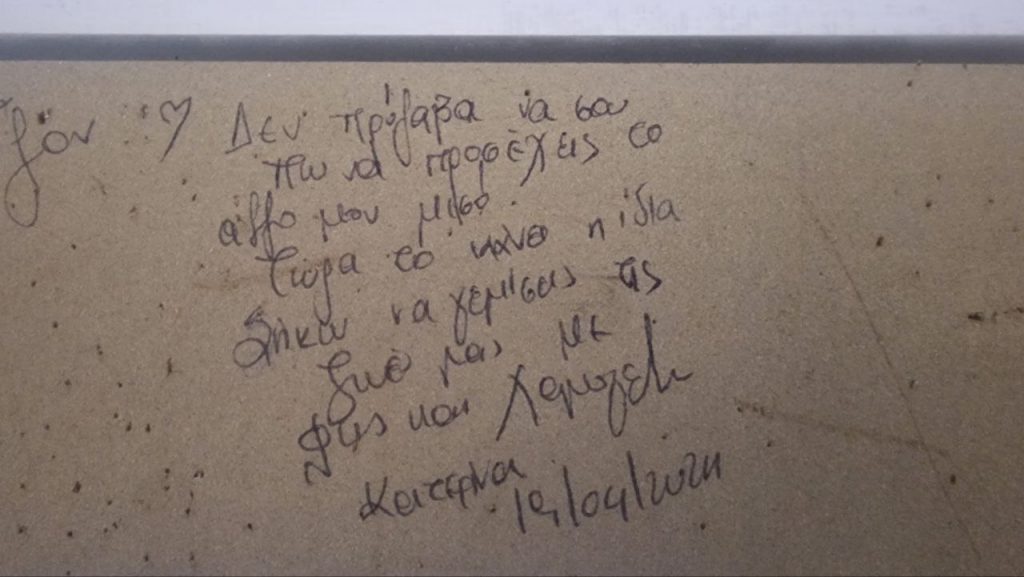 Δεν πρόλαβα να σου
πω να προσέχεις το
άλλο μου μισό.
Τώρα το κάνω η ίδια
Σήκω να γεμίσεις τις
ζωές μας με
φως και χαμόγελα
Κατερίνα
19/04/2021